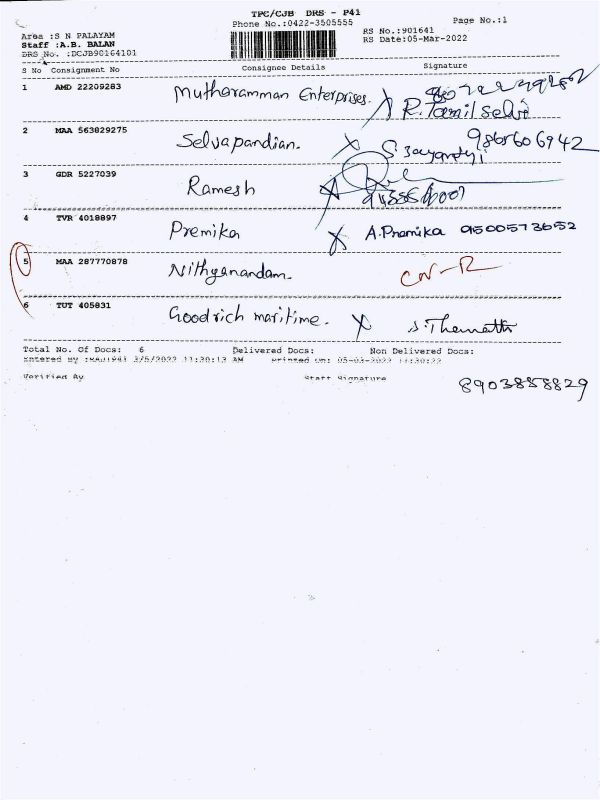 TPC/CJB DRS - P41
Phone No.:0422-3505555
Page No.:1
Area :S N PALAYAM
RS No.:901641
Staff :A.B. BALAN
RS Date:05-Mar-2022
DRS No. :DCJB90164101
S No Consignment No Consignee Details Signature
1 AMD 22209283 Mutharamman Enterprises.
R. Tamil Selvi
2 MAA 563829275 Selvapandian. X 9865606942
S. Jayanthi
3 GDR 5227039 Ramesh
4 TVR 4018897 Premika X A.Premika 9500573652
5 MAA 287770878 Nithyanandam. CN-R
6 TUT 405831 Goodrich maritime. X
Total No. Of Docs: 6 Delivered Docs: Non Delivered Docs:
Entered By :RAJ1941 3/5/2022 11:30:13 AM Printed On: 05-03-2022 11:30:22
Verified By Staff Signature
8903858829